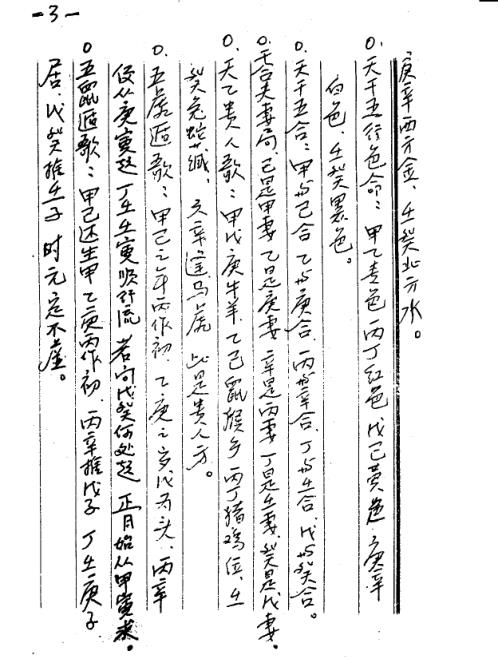 -3-
庚辛西方金、壬癸北方水。
0、天干五行色命：甲乙青色 丙丁红色 戊己黄色 庚辛
白色、壬癸黑色。
0、天干五合：甲与己合 乙与庚合、丙与辛合、丁与壬合、戊与癸合。
0、天合夫妻局、己是甲妻 乙是庚妻 辛是丙妻 丁是壬妻、癸是戊妻。
0、天乙贵人歌：甲戊庚牛羊、乙己鼠猴乡 丙丁猪鸡位、壬
癸兔蛇藏、六辛逢马虎 此是贵人方。
0、五虎遁歌：甲己之年丙作初、乙庚之岁戊为头、丙辛
便从庚寅起 丁壬壬寅顺行流 若问戊癸何处起 正月始从甲寅求。
0 五鼠遁歌：甲己还生甲 乙庚丙作初、丙辛推戊子 丁壬庚子
居、戊癸推壬子 时元定不虚。